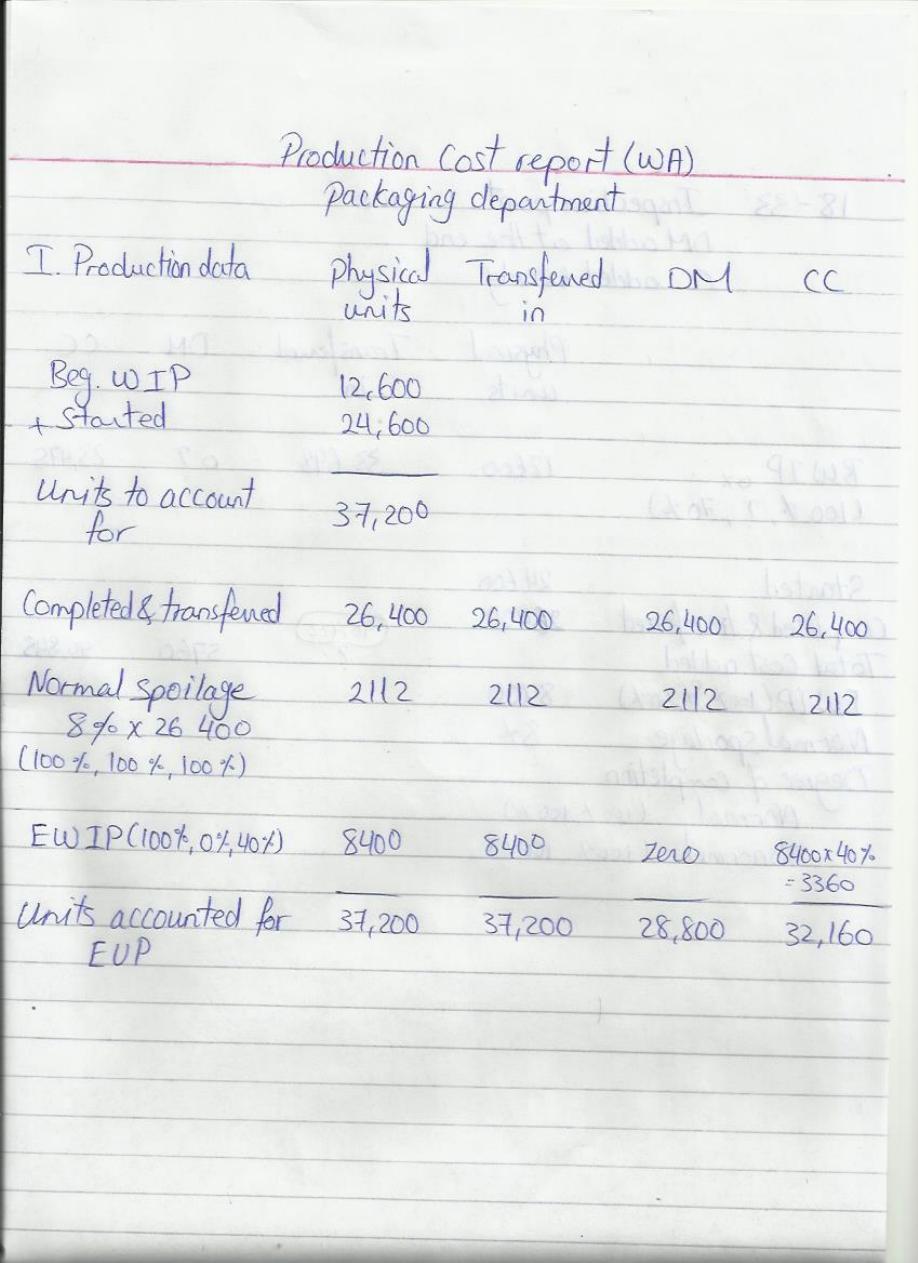 Production Cost report (WA)
Packaging department
I. Production data Physical units Transferred in DM CC
Beg. WIP 12,600
+ Started 24,600
Units to account for 37,200
Completed & transferred 26,400 26,400 26,400 26,400
Normal spoilage 2112 2112 2112 2112
8% x 26 400
(100%, 100%, 100%)
EWIP (100%, 0%, 40%) 8400 8400 zero 8400x40%
=3360
Units accounted for 37,200 37,200 28,800 32,160
EUP